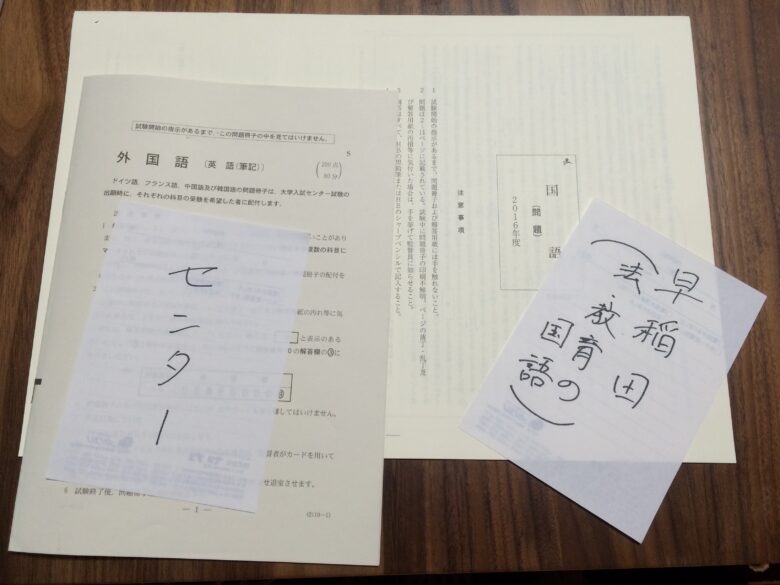 試験開始の指示があるまで、この問題冊子の中を見てはいけません。
S
外国語 〔英語(筆記)〕 (200点 80分)
ドイツ語、フランス語、中国語及び韓国語の問題冊子は、大学入試センター試験の
出願時に、それぞれの科目の受験を希望した者に配付します。
センター
と表示のある
の解答欄の③に
してはいけません。
カードを用いて
退室させます。
6 試験終了後、問題冊子
― 1 ―
(2110―1)
国語
(問題)
2016年度
注意事項
1 試験開始の指示があるまで、問題冊子および解答用紙には手を触れないこと。
2 問題は2~11ページに記載されている。試験中に問題冊子の印刷不鮮明、ページの落丁・乱丁及
び解答用紙の汚損等に気付いた場合は、手を挙げて監督員に知らせること。
3 解答はすべて、HBの黒鉛筆またはHBのシャープペンシルで記入すること。
早稲田
(法、教育の
国語)